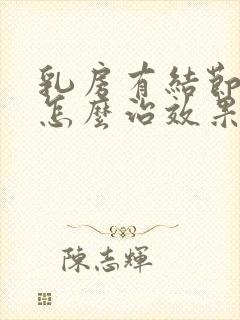 乳房有結節
怎麼治效果
陳志輝